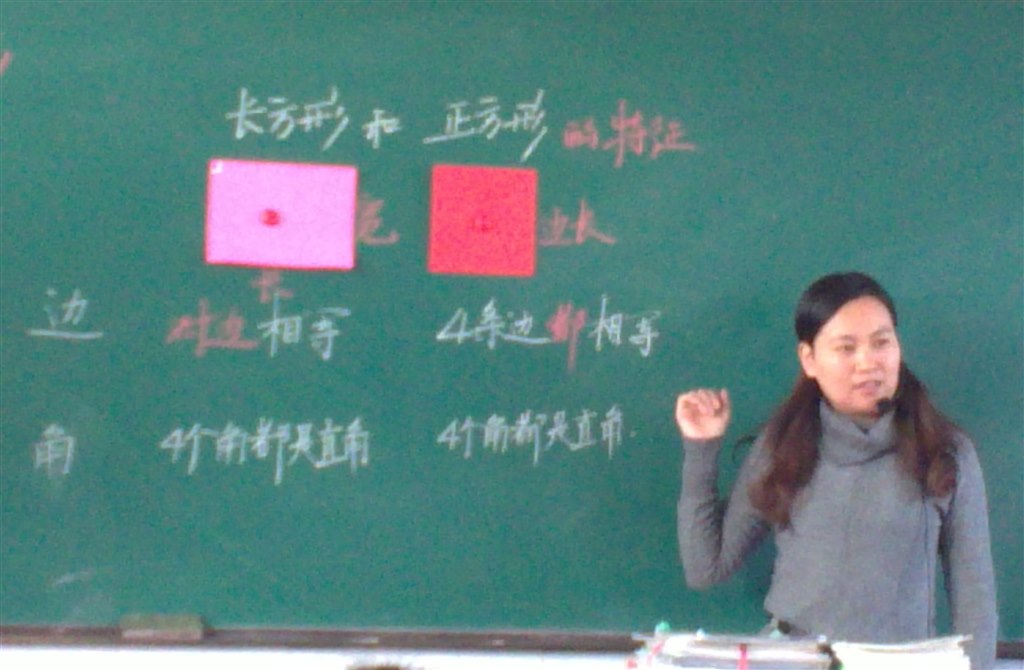 长方形和正方形的特征
宽 边长
长
边 对边相等 4条边都相等
角 4个角都是直角 4个角都是直角.